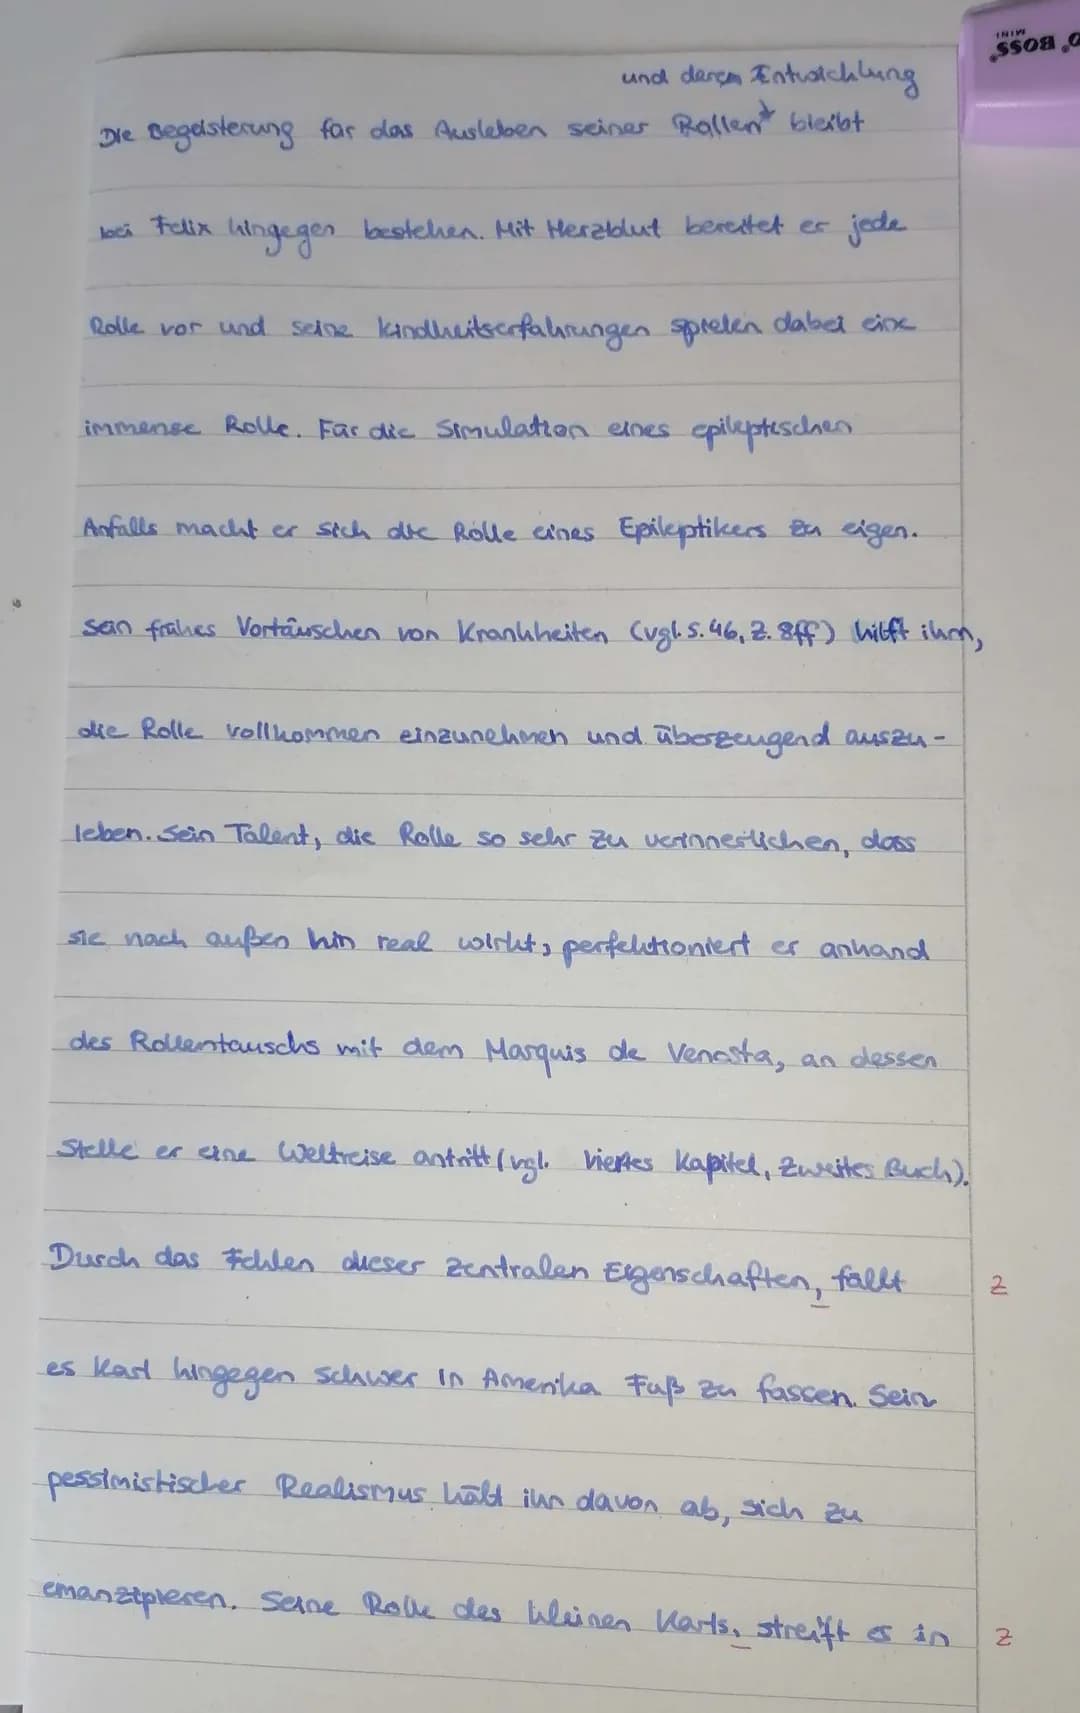 BOSS
MINI
und deren Entwicklung
Die Begeisterung für das Ausleben seiner Rollen* bleibt
bei Felix hingegen bestehen. Mit Herzblut bereitet er jede
Rolle vor und seine Kindheitserfahrungen spielen dabei eine
immense Rolle. Für die Simulation eines epileptischen
Anfalls macht er sich die Rolle eines Epileptikers zu eigen.
Sein frühes Vortäuschen von Krankheiten (vgl. S. 46, Z. 8ff) hilft ihm,
die Rolle vollkommen einzunehmen und überzeugend auszu-
leben. Sein Talent, die Rolle so sehr zu verinnerlichen, dass
sie nach außen hin real wirkt, perfektioniert er anhand
des Rollentauschs mit dem Marquis de Venosta, an dessen
Stelle er eine Weltreise antritt (vgl. Viertes Kapitel, Zweites Buch).
Durch das Fehlen dieser zentralen Eigenschaften, fällt Z
es Karl hingegen schwer in Amerika Fuß zu fassen. Sein
pessimistischer Realismus hält ihn davon ab, sich zu
emanzipieren. Seine Rolle des kleinen Karls, streift es in Z